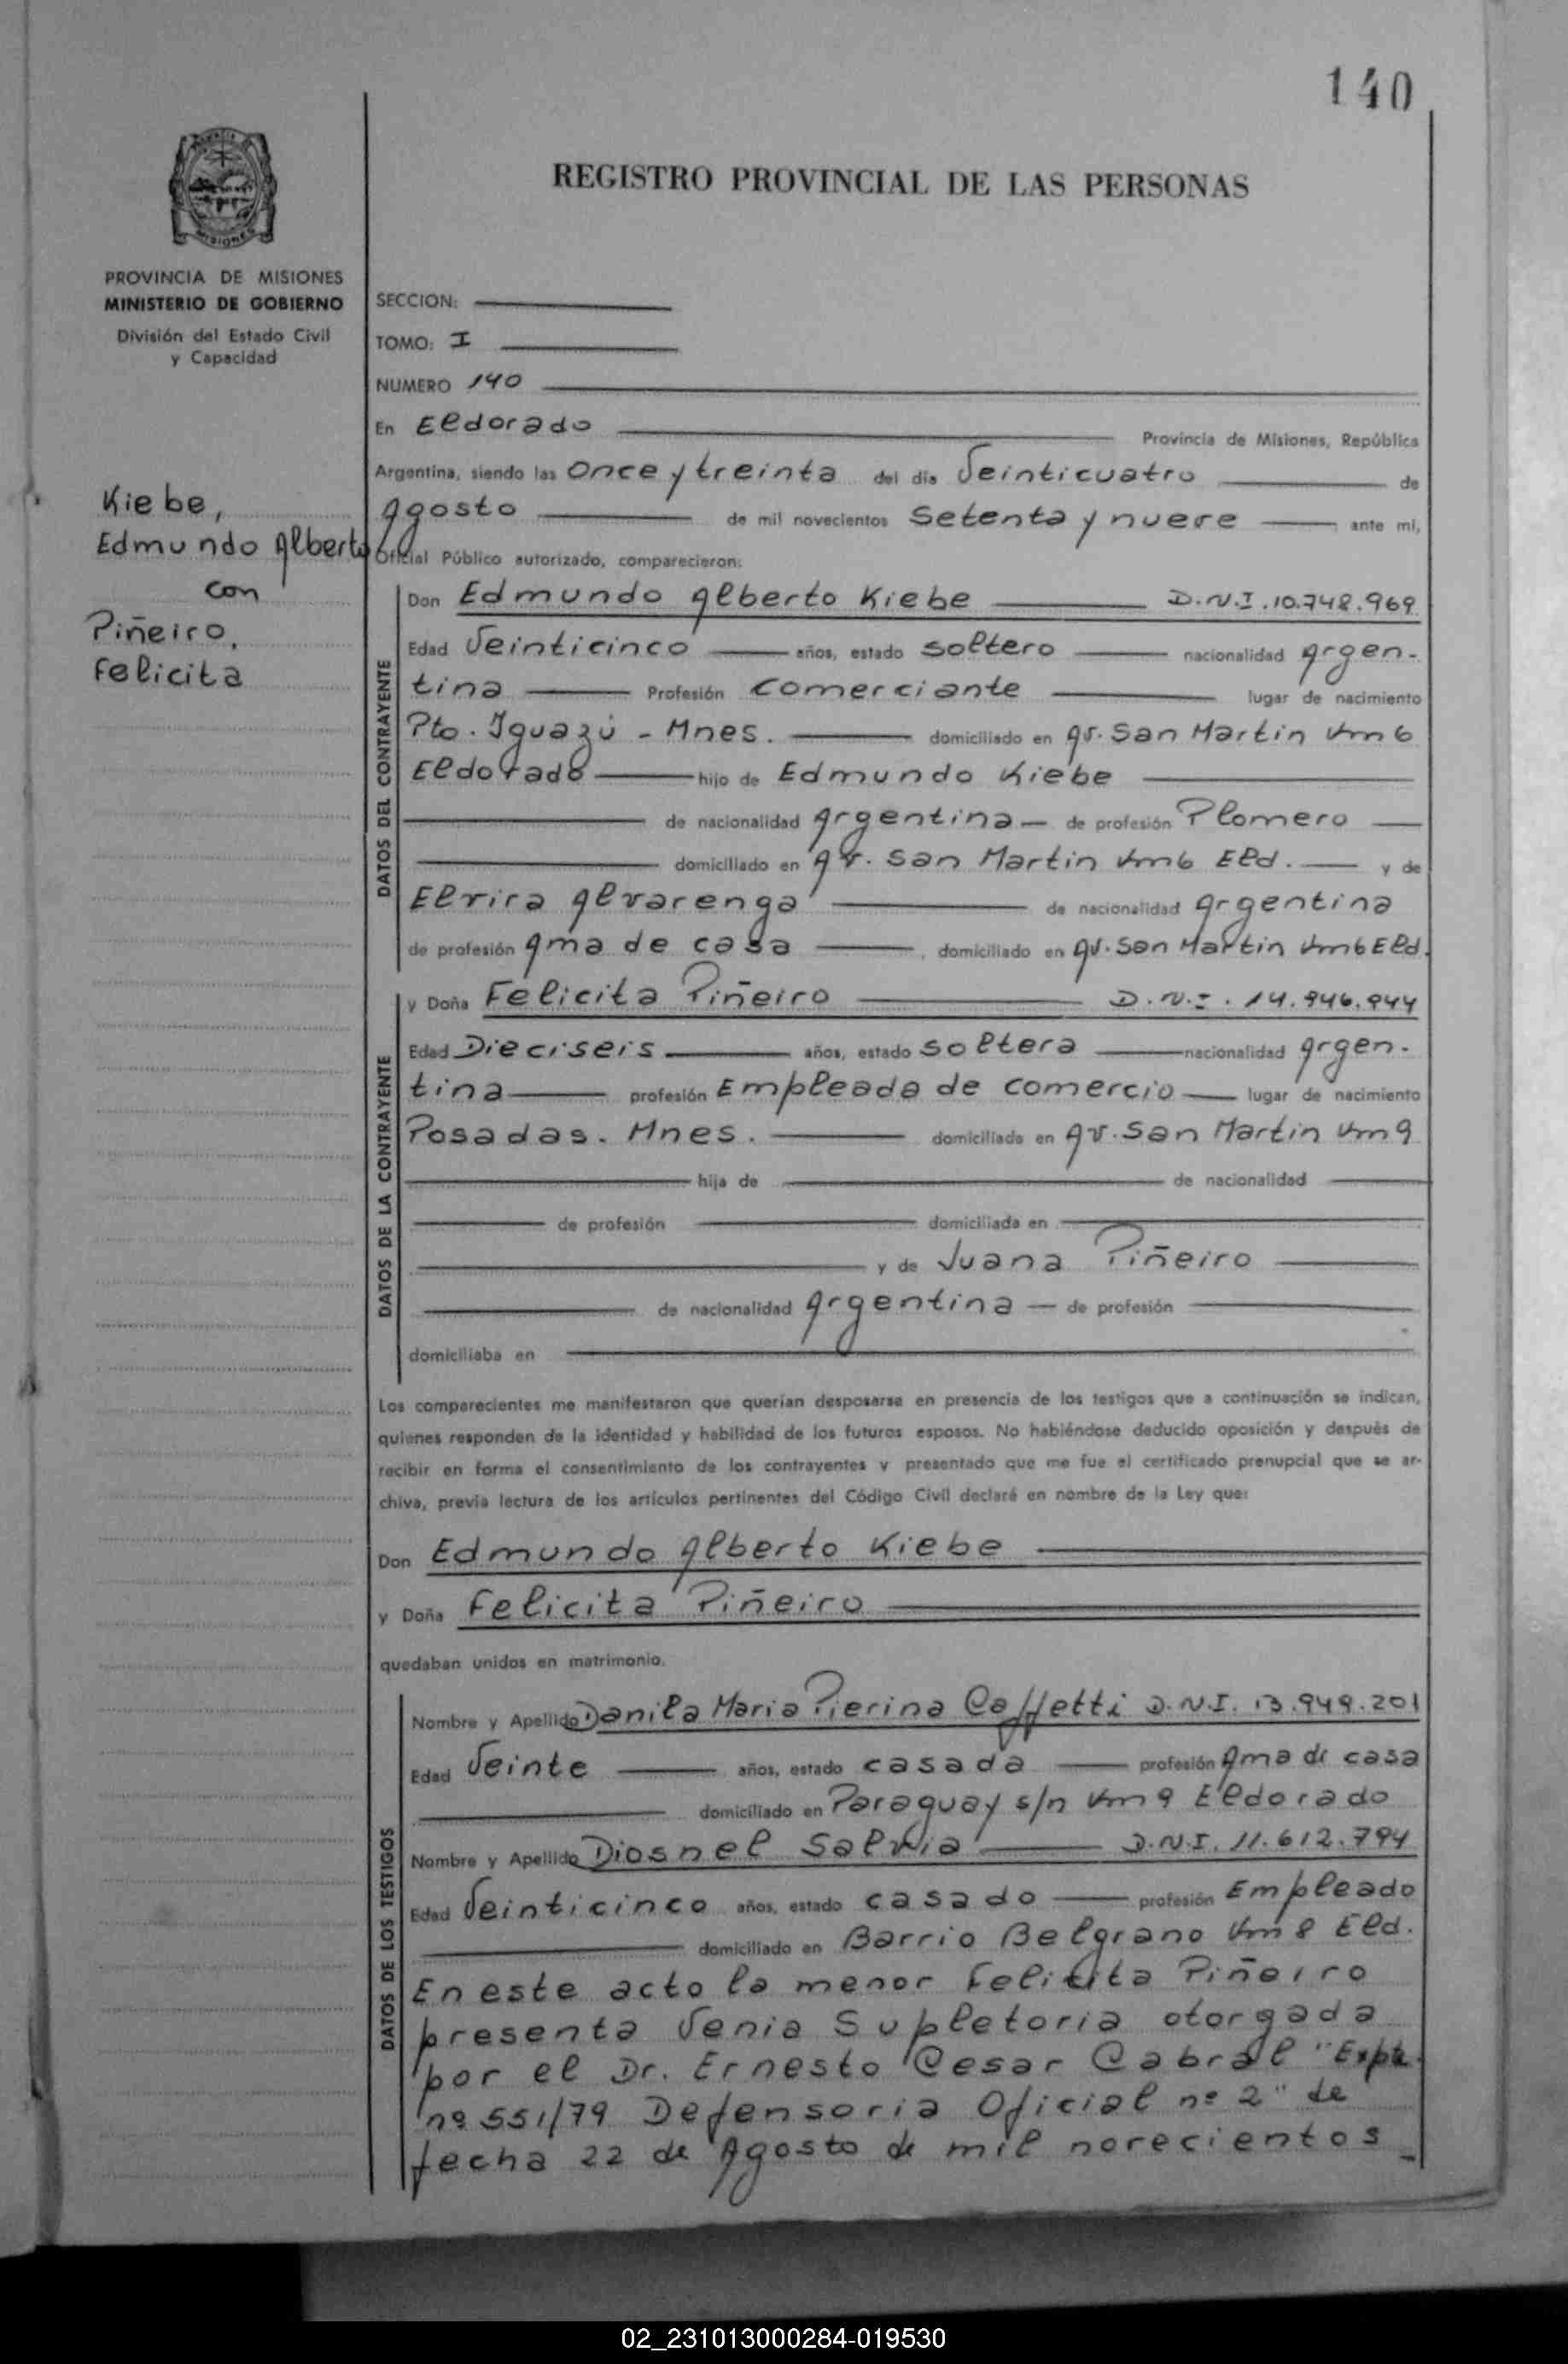 140
REGISTRO PROVINCIAL DE LAS PERSONAS
MISIONES
PROVINCIA DE MISIONES
MINISTERIO DE GOBIERNO
División del Estado Civil
y Capacidad
Kiebe,
Edmundo Alberto
con
Piñeiro,
Felicita
SECCION:
TOMO: I
NUMERO 140
En Eldorado Provincia de Misiones, República
Argentina, siendo las Once y treinta del día Veinticuatro de
Agosto de mil novecientos Setenta y nueve ante mí,
Oficial Público autorizado, comparecieron:
DATOS DEL CONTRAYENTE
Don Edmundo Alberto Kiebe D.N.I. 10.748.969
Edad Veinticinco años, estado soltero nacionalidad Argen-
tina Profesión Comerciante lugar de nacimiento
Pto. Iguazú - Mnes. domiciliado en Av. San Martin Km 6
Eldorado hijo de Edmundo Kiebe
de nacionalidad Argentina de profesión Plomero
domiciliado en Av. San Martin Km 6 Eld. y de
Elvira Alvarenga de nacionalidad Argentina
de profesión Ama de casa, domiciliado en Av. San Martin Km 6 Eld.
DATOS DE LA CONTRAYENTE
y Doña Felicita Piñeiro D.N.I. 14.946.944
Edad Dieciseis años, estado soltera nacionalidad Argen-
tina profesión Empleada de comercio lugar de nacimiento
Posadas. Mnes. domiciliada en Av. San Martin Km 9
hija de de nacionalidad
de profesión domiciliada en
y de Juana Piñeiro
de nacionalidad Argentina de profesión
domiciliaba en
Los comparecientes me manifestaron que querían desposarse en presencia de los testigos que a continuación se indican,
quienes responden de la identidad y habilidad de los futuros esposos. No habiéndose deducido oposición y después de
recibir en forma el consentimiento de los contrayentes y presentado que me fue el certificado prenupcial que se ar-
chiva, previa lectura de los artículos pertinentes del Código Civil declaré en nombre de la Ley que:
Don Edmundo Alberto Kiebe
y Doña Felicita Piñeiro
quedaban unidos en matrimonio.
DATOS DE LOS TESTIGOS
Nombre y Apellido Danila Maria Pierina Caffetti D.N.I. 13.949.201
Edad Veinte años, estado casada profesión Ama de casa
domiciliado en Paraguay s/n Km 9 Eldorado
Nombre y Apellido Diosnel Salvia D.N.I. 11.612.794
Edad Veinticinco años, estado casado profesión Empleado
domiciliado en Barrio Belgrano Km 8 Eld.
En este acto la menor Felicita Piñeiro
presenta Venia Supletoria otorgada
por el Dr. Ernesto Cesar Cabral "Expte.
nº 551/79 Defensoria Oficial nº 2" de
fecha 22 de Agosto de mil novecientos
02_231013000284-019530